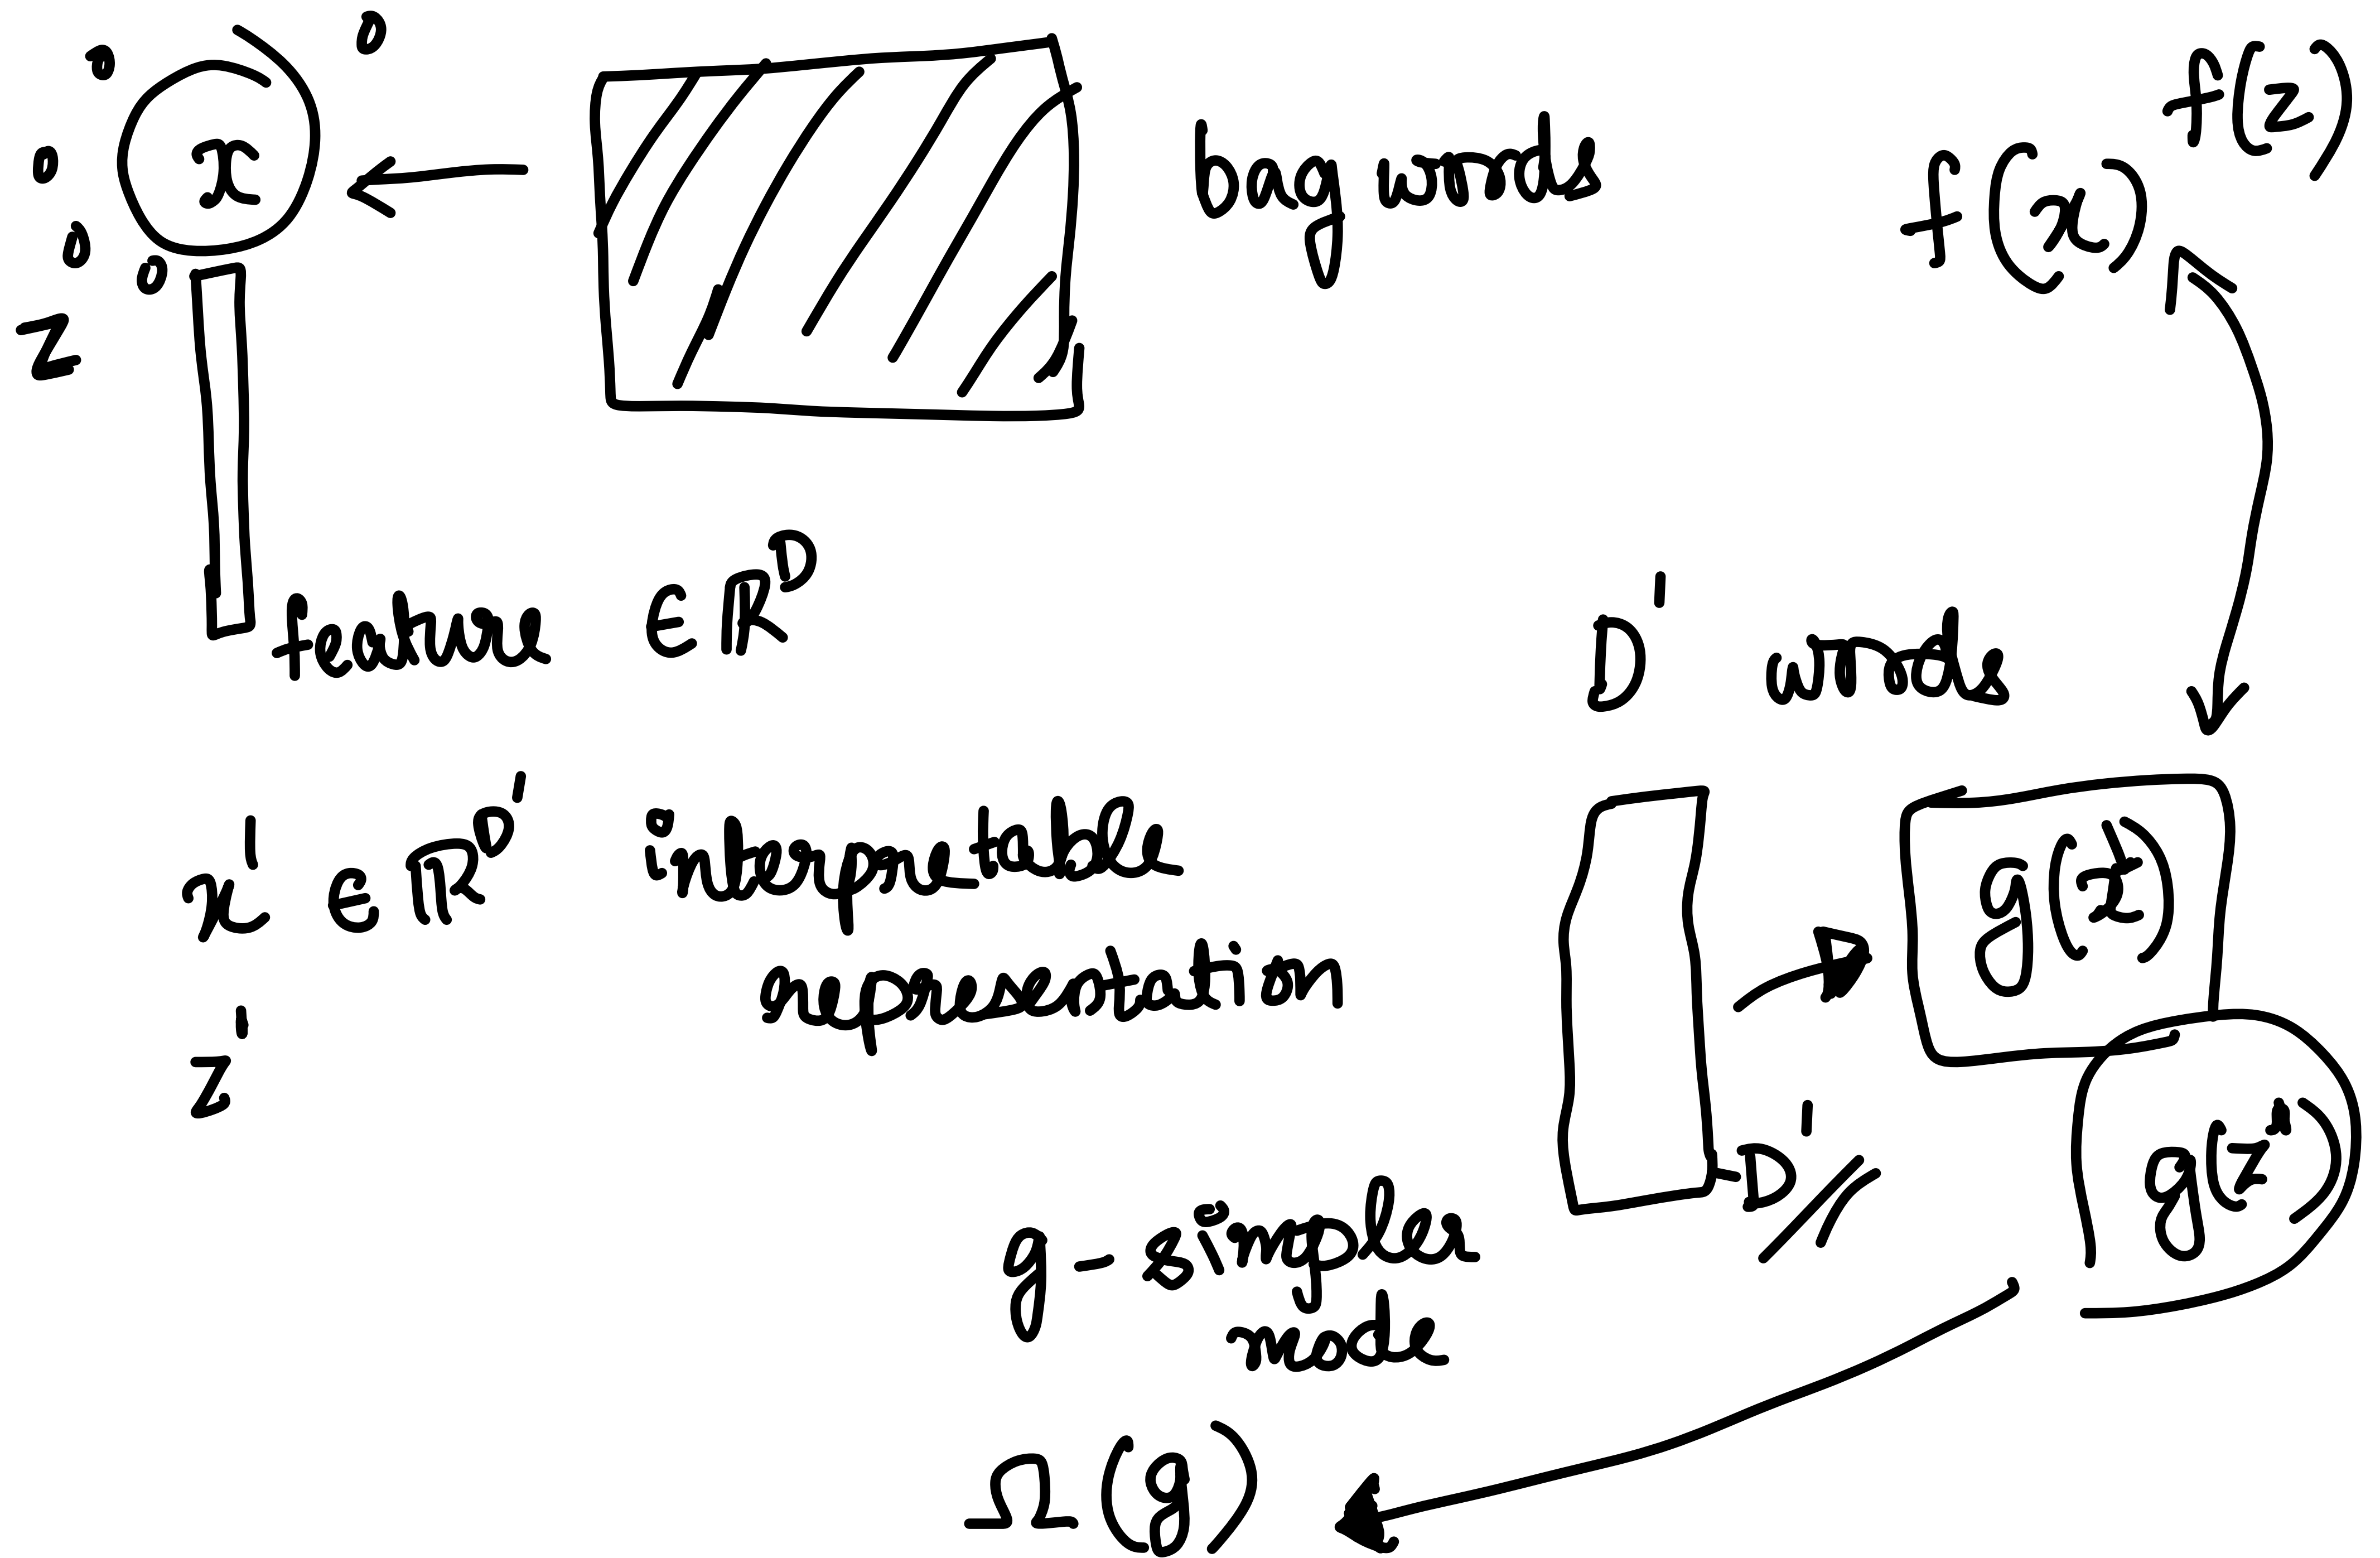 x
z
bag words
f(z)
f(x)
feature ∈ R^D
D' words
x' ∈ R^D' interpretable
representation
z'
g(x')
g(z')
D'
g - simples
mode
Ω(g)